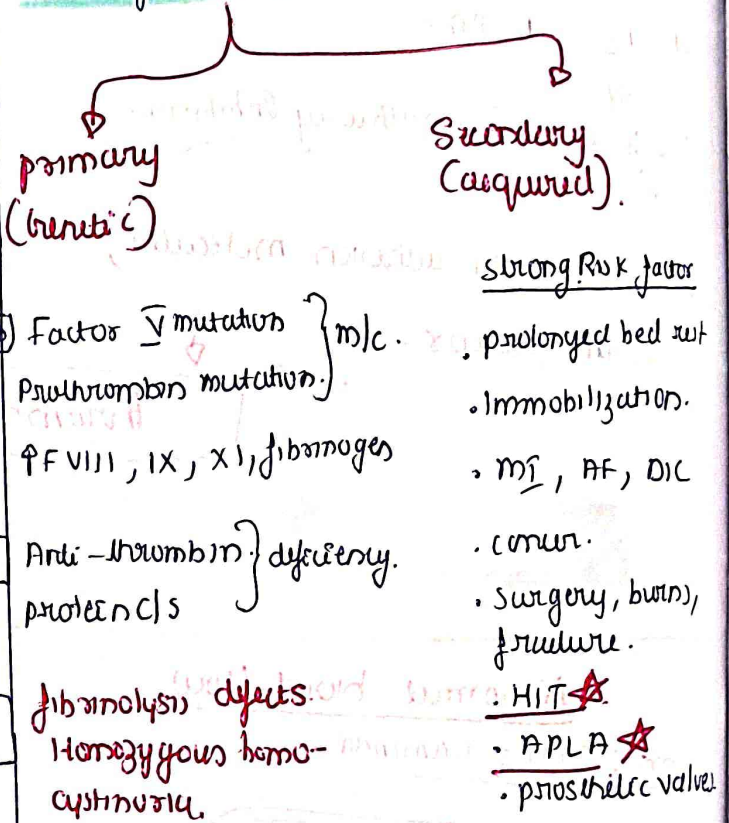 primary
(Genetic)
Factor V mutation } m/c.
Prothrombin mutation.
↑F VIII, IX, XI, fibrinogen
Anti-thrombin } deficiency.
protein C/S
fibrinolysis defects.
Homozygous homo-
cystinuria.
Secondary
(acquired).
strong Risk factor
• prolonged bed rest
• Immobilization.
• MI, AF, DIC
• cancer.
• surgery, burns,
fracture.
• HIT ☆
• APLA ☆
• prosthetic valves